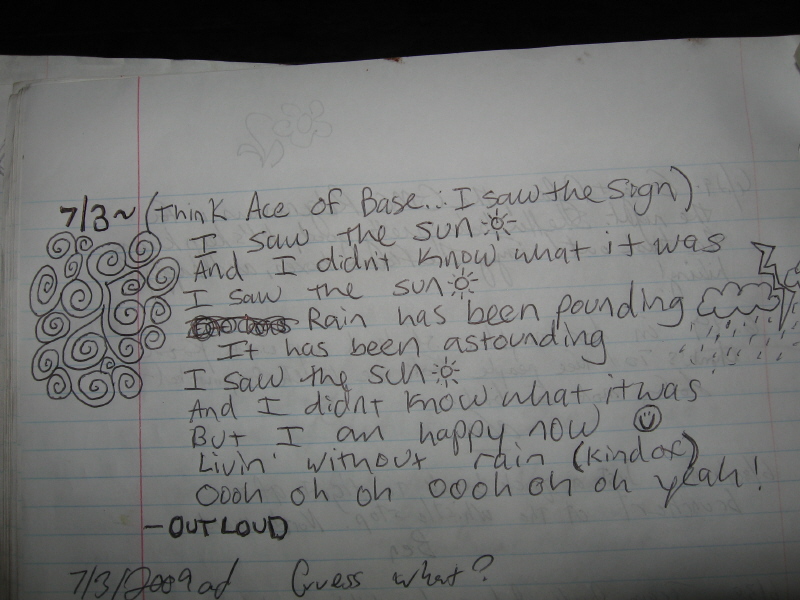 7/3~ (Think Ace of Base... I saw the Sign)
I saw the sun
And I didn't know what it was
I saw the sun
Rain has been pounding
It has been astounding
I saw the sun
And I didnt know what it was
But I am happy now
Livin' without rain (kind of)
Oooh oh oh oooh oh oh yeah!
-OUTLOUD
7/3/2009ad Guess what?